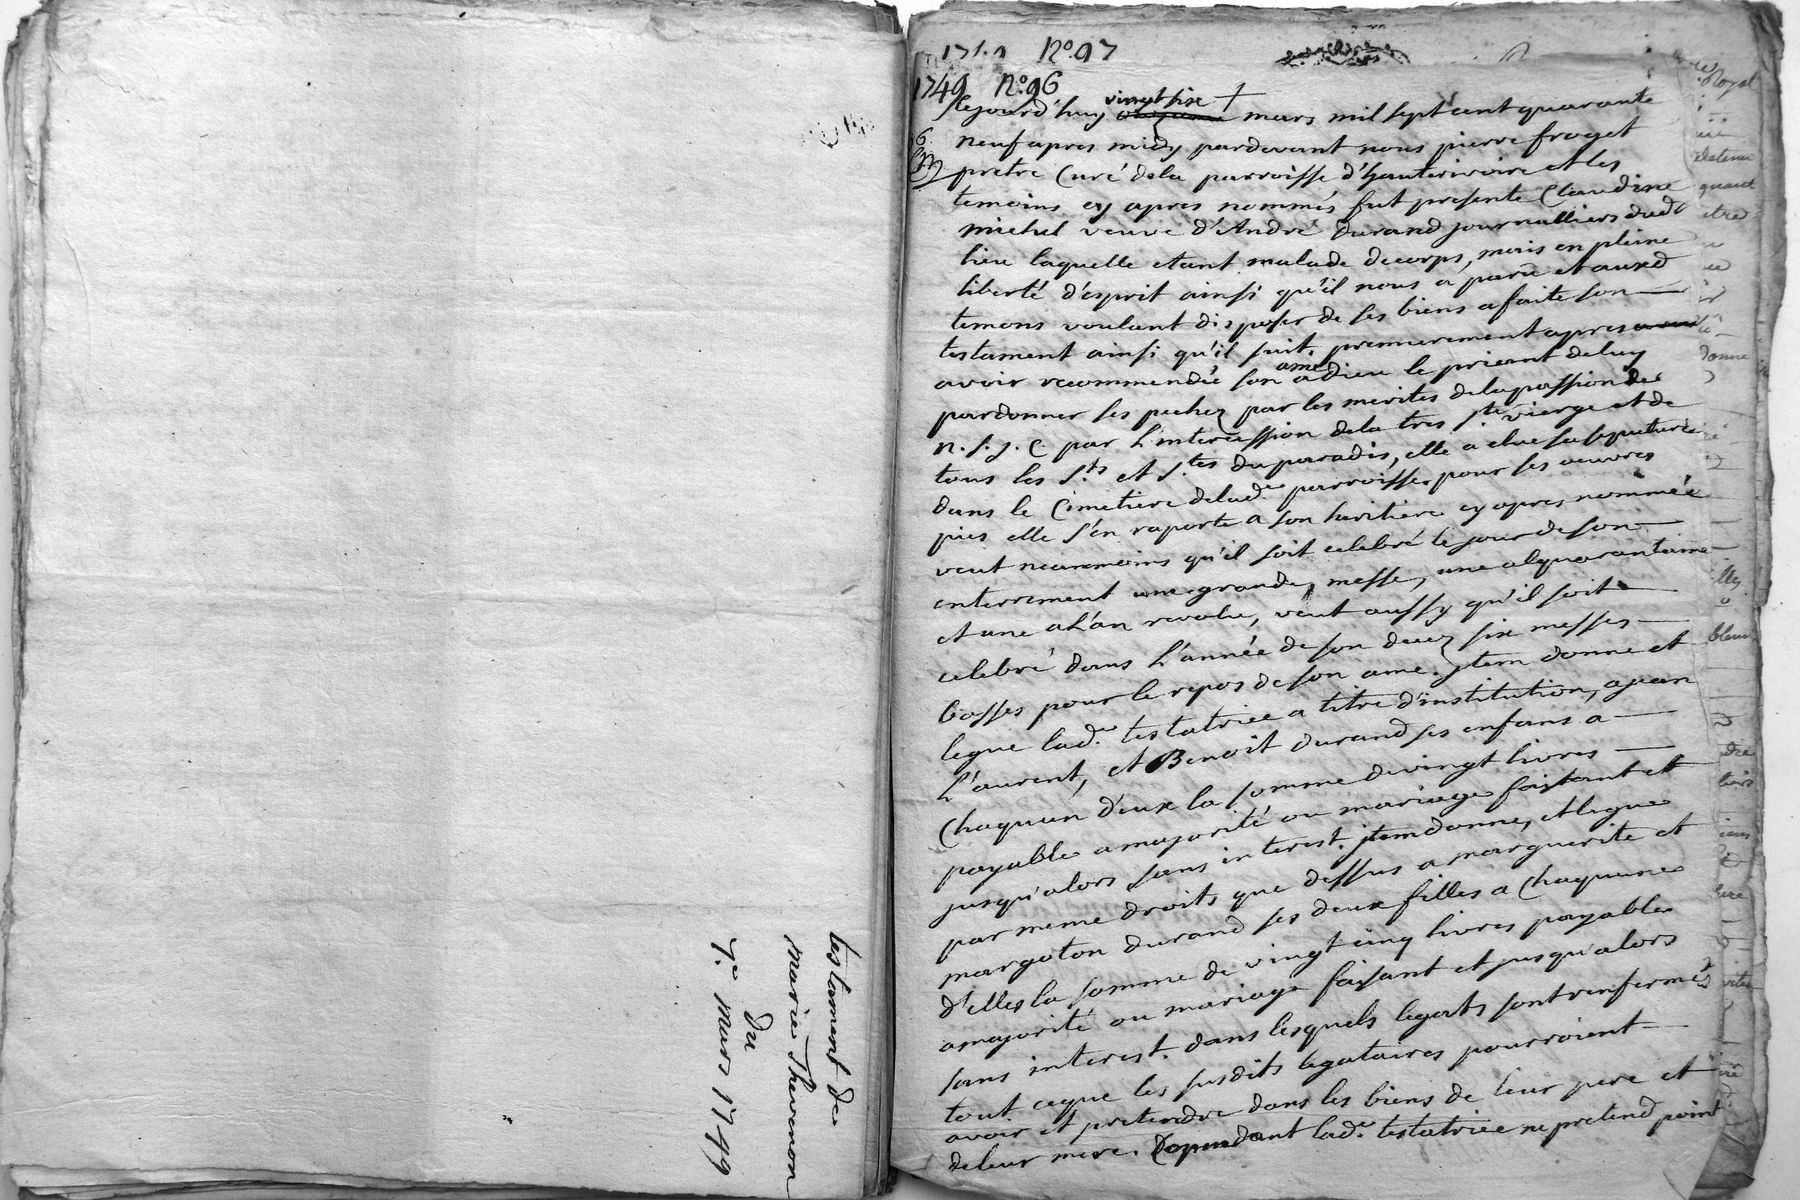 testament de
marie Thevenon
du
7.e mars 1749
N.o 97
1749 N.o 96
Cejourd'huy vingt six mars mil sept cent quarante
neuf apres midy pardevant nous pierre froget
pretre Curé dela parroisse d'hauterivoire et les
temoins cy apres nommés fut presente Claudine
michel veuve d'André durand journalliers dud
lieu laquelle etant malade de corps, mais en pleine
liberté d'esprit ainsi qu'il nous a paru et auxd
temons voulant disposer de ses biens a faite son
testament ainsi qu'il suit. premierement apres
avoir recommendée son ame a dieu le priant de luy
pardonner ses pechez par les merites dela passion de
n. s. j. C par l'intercession dela tres s.te vierge et de
tous les s.ts et s.tes du paradis, elle a elue sa sepulture
dans le Cimetiere delad.e parroisse, pour ses oeuvres
pies elle s'en raporte a son heritiere cy apres nommée
veut neanmoins qu'il soit celebré le jour de son
enterrement une grande messe, une al quarantaine
et une a l'an revolu, veut aussy qu'il soit
celebré dans l'année de son decez six messes
basses pour le repos de son ame. jtem donne et
legue lad.e testatrice a titre d'institution, a jean
L'aurent, et Benoit durand ses enfans a
Chaquun d'eux la somme de vingt livres
payable a majorité ou mariage faisant et
jusqu'alors sans interest. jtem donne, et legue
par meme droits que dessus a marguerite et
margoton durand ses deux filles a Chaqune
d'elles la somme de vingt cinq livres payable
a majorité ou mariage faisant et jusqu'alors
sans interest. dans lesquels legats sont renfermés
tout ceque les susdits legataires pourroient
avoir et pretendre dans les biens de leur pere et
de leur mere. Cependant lad.e testatrice ne pretend point